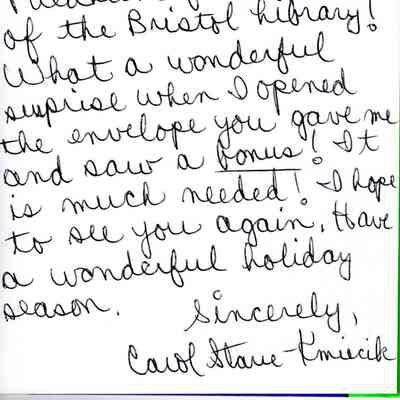 of the Bristol Library!
What a wonderful
surprise when I opened
the envelope you gave me
and saw a bonus! It
is much needed! I hope
to see you again. Have
a wonderful holiday
season.
Sincerely,
Carol Stone-Kmiecik